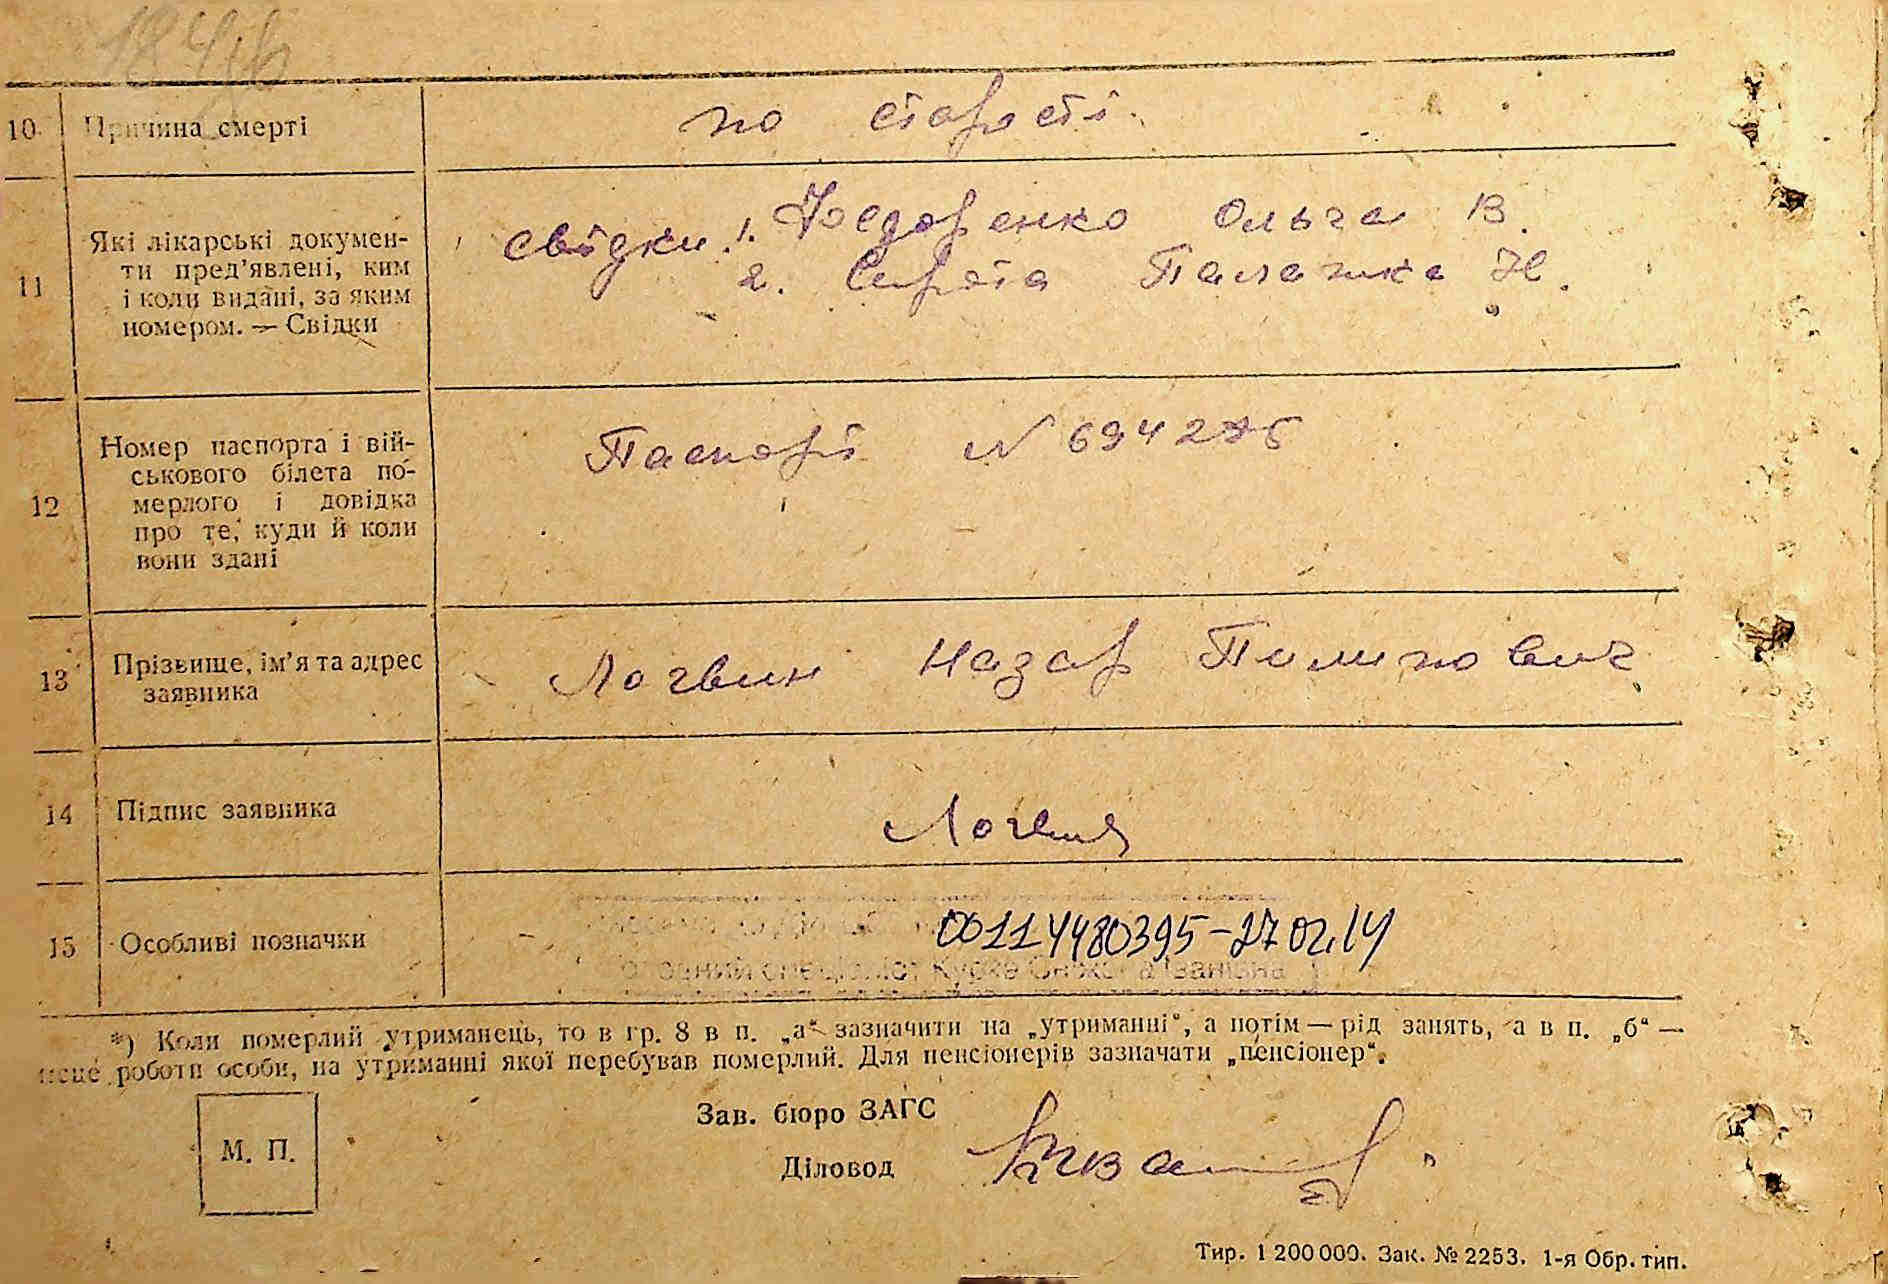 10 Причина смерті по старості.
11 Які лікарські докумен-
ти пред'явлені, ким
і коли видані, за яким
номером. — Свідки
свідки: 1. Федоренко Ольга В.
2. Сирота Палажка Н.
12 Номер паспорта і вій-
ськового білета по-
мерлого і довідка
про те, куди й коли
вони здані
Паспорт N 694276
13 Прізвище, ім'я та адрес
заявника
Логвин Назар Пилипович
14 Підпис заявника Логвин
15 Особливі позначки
00114480395-27.02.14
спеціаліст Іванівна
*) Коли померлий утриманець, то в гр. 8 в п. „а“ зазначити на „утриманні“, а потім — рід занять, а в п. „б“ —
місце роботи особи, на утриманні якої перебував померлий. Для пенсіонерів зазначати „пенсіонер“.
М. П.
Зав. бюро ЗАГС
Діловод
Тир. 1 200 000. Зак. № 2253. 1-я Обр. тип.